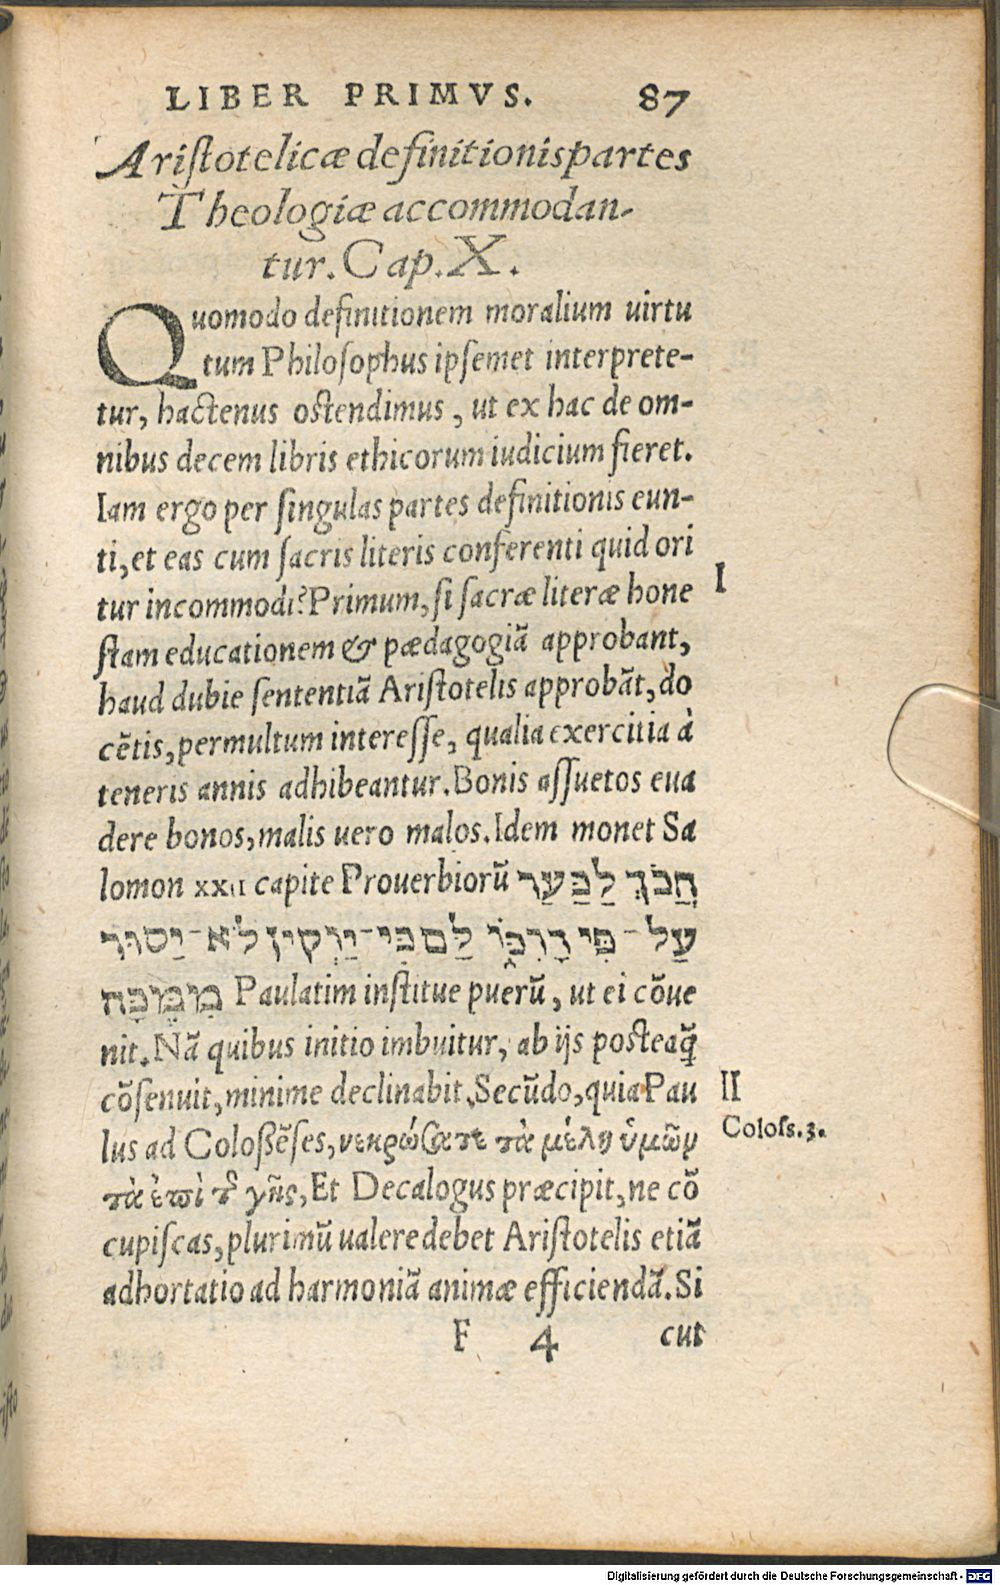 LIBER PRIMVS. 87
Aristotelicæ definitionis partes
Theologiæ accommodan-
tur. Cap. X.
Quomodo definitionem moralium uirtu
tum Philosophus ipsemet interprete-
tur, hactenus ostendimus, ut ex hac de om-
nibus decem libris ethicorum iudicium fieret.
Iam ergo per singulas partes definitionis eun-
ti, et eas cum sacris literis conferenti quid ori
tur incommodi? Primum, si sacræ literæ hone
I
stam educationem & pædagogiã approbant,
haud dubie sententiã Aristotelis approbãt, do
cẽtis, permultum interesse, qualia exercitia à
teneris annis adhibeantur. Bonis assuetos eua
dere bonos, malis uero malos. Idem monet Sa
lomon XXII capite Prouerbiorũ חֲנֹךְ לַנַּעַר
עַל־פִּי דָרְכּוֹ גַּם כִּי־יַזְקִין לֹא־יָסוּר
מִמֶּנָּה Paulatim institue puerũ, ut ei cõue
nit. Nã quibus initio imbuitur, ab ijs posteaq̃
cõsenuit, minime declinabit. Secũdo, quia Pau
II
lus ad Coloßẽses, νεκρώσατε τὰ μέλη ὑμῶν
Coloss. 3.
τὰ ἐπὶ τ͂ γῆς, Et Decalogus præcipit, ne cõ
cupiscas, plurimũ ualere debet Aristotelis etiã
adhortatio ad harmoniã animæ efficiendã. Si
F 4 cut
Digitalisierung gefördert durch die Deutsche Forschungsgemeinschaft - DFG